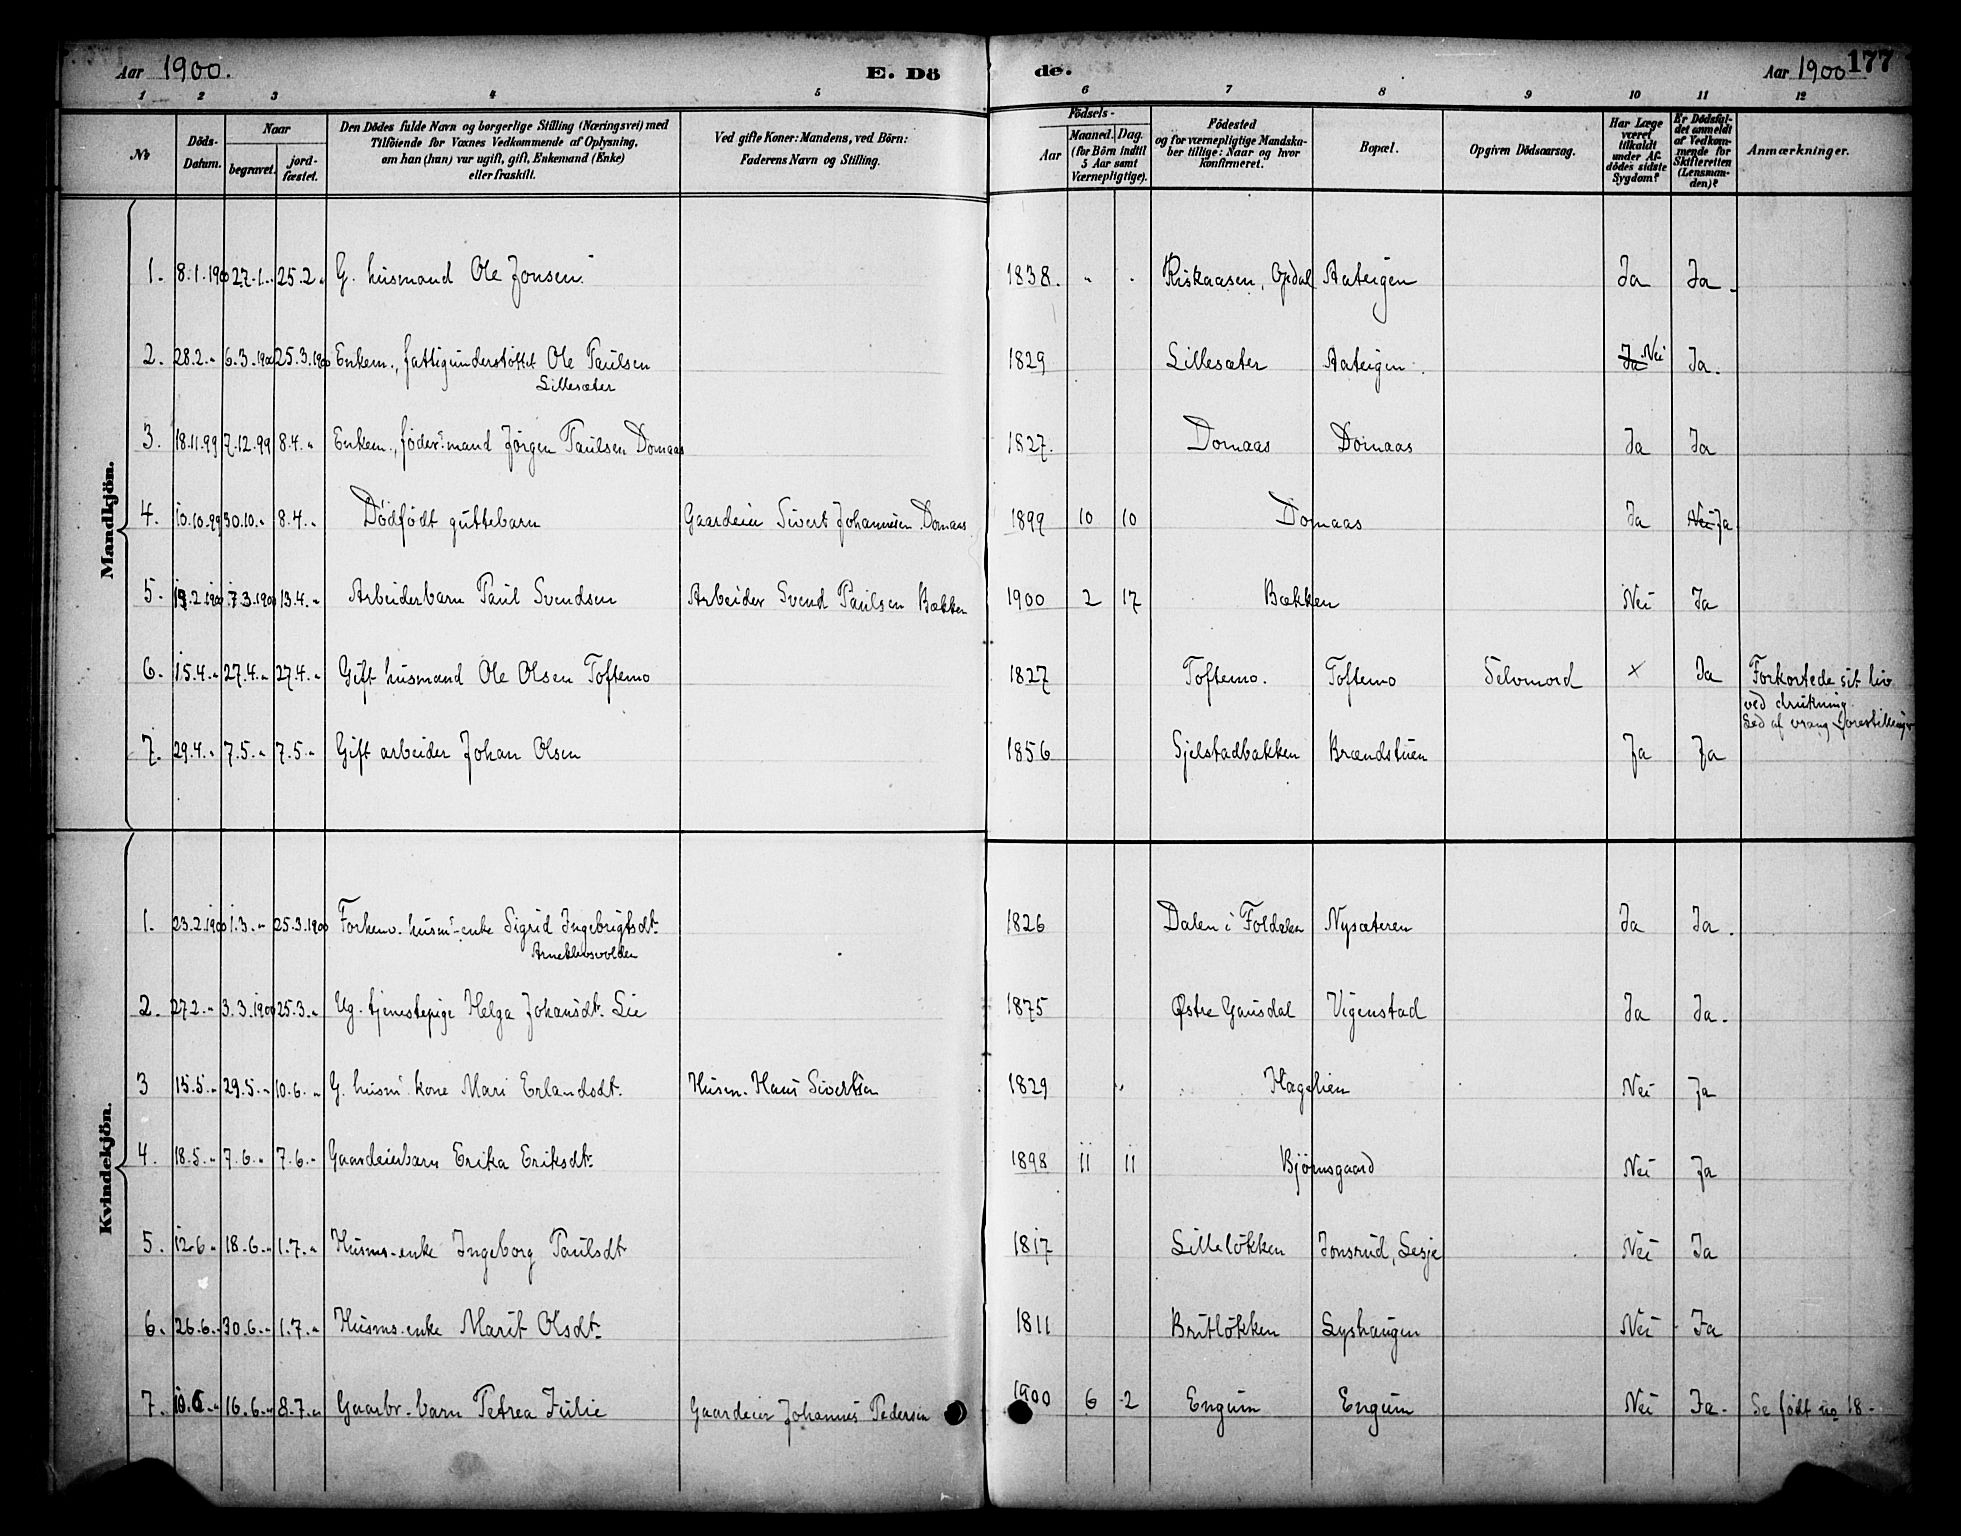 Aar 1900.
E. Dö
de.
Aar 1900
177
1 2 3 4 5 6 7 8 9 10 11 12
No
Döds-Datum.
Naar
begravet.
jord-fæstet.
Den Dödes fulde Navn og borgerlige Stilling (Næringsvei) med
Tilföiende for Voxnes Vedkommende af Oplysning,
om han (hun) var ugift, gift, Enkemand (Enke)
eller fraskilt.
Ved gifte Koner: Mandens, ved Börn:
Faderens Navn og Stilling.
Födsels-
Aar
Maaned. Dag.
(for Börn indtil
5 Aar samt
Værnepligtige).
Födested
og for værnepligtige Mandska-
ber tillige: Naar og hvor
konfirmeret.
Bopæl.
Opgiven Dödsaarsag.
Har Læge
været
tilkaldt
under Af-
dödes sidste
Sygdom?
Er Dödsfal-
det anmeldt
af Vedkom-
mende for
Skifteretten
(Lensman-
den)?
Anmærkninger.
Mandkjön.
1. 8.1.1900 27.1. „ 25.2 „ G. husmand Ole Jonsen 1838. „ . Riskaasen, Opdal Aateigen Ja Ja.
2. 28.2. „ 6.3.1900 25.3.1900 Enkem., fattigunderstøttet Ole Paulsen 1829 Lillesæter Aateigen. Ja Nei Ja.
Lillesæter
3. 18.11.99 7.12.99 8.4. „ Enkem., føder.mand Jørgen Paulsen Domaas 1827. Domaas Domaas Ja Ja
4. 10.10.99 30.10. „ 8.4. „ Dødfødt guttebarn Gaardeier Sivert Johannesen Domaas 1899 10 10 Domaas Ja Nei Ja.
5. 19.2.1900 7.3.1900 13.4. „ Arbeiderbarn Paul Svendsen Arbeider Svend Paulsen Bækken 1900 2 17 Bækken Nei Ja
6. 15.4. „ 27.4. „ 27.4. „ Gift husmand Ole Olsen Toftemo 1827 Toftemo. Toftemo Selvmord × Ja Forkortede sit liv
ved drukning
Led af vrang forestillinger
7. 29.4. „ 7.5. „ 7.5. „ Gift arbeider Johan Olsen 1856 Sjelstadbakken Brændstuen Ja Ja
Kvindekjön.
1. 23.2.1900 1.3. „ 25.3.1900 Forhenv. husm.-enke Sigrid Ingebrigtsdt. 1826 Dalen i Foldalen Nysæteren Ja Ja.
2. 27.2. „ 3.3.1900 25.3. „ Ug. tjenestepige Helga Johansdt. Lie 1875 Østre Gausdal Vigenstad Ja Ja.
3 15.5. „ 29.5. „ 10.6. „ G. husm. kone Mari Erlandsdt. Husm. Hans Sivertsen 1829 „ Hagelien Nei Ja
4. 18.5. „ 7.6. „ 7.6. „ Gaardeierbarn Erika Eriksdt. 1898 11 11 Bjørnsgaard Nei Ja
5. 12.6 „ 18.6. „ 1.7. „ Husms-enke Ingeborg Paulsdt 1817 Lilleløkken Jonsrud, Lesje Nei Ja
6. 26.6. „ 30.6. „ 1.7. „ Husms-enke Marit Olsdt. 1811 Britløkken Lyshaugen Nei Ja
7. 10.6. „ 16.6. „ 8.7. „ Gaarbr. barn Petrea Julie Gaardeier Johannes Pedersen 1900 6 2 Engum Engum Nei Ja. Se født no 18.